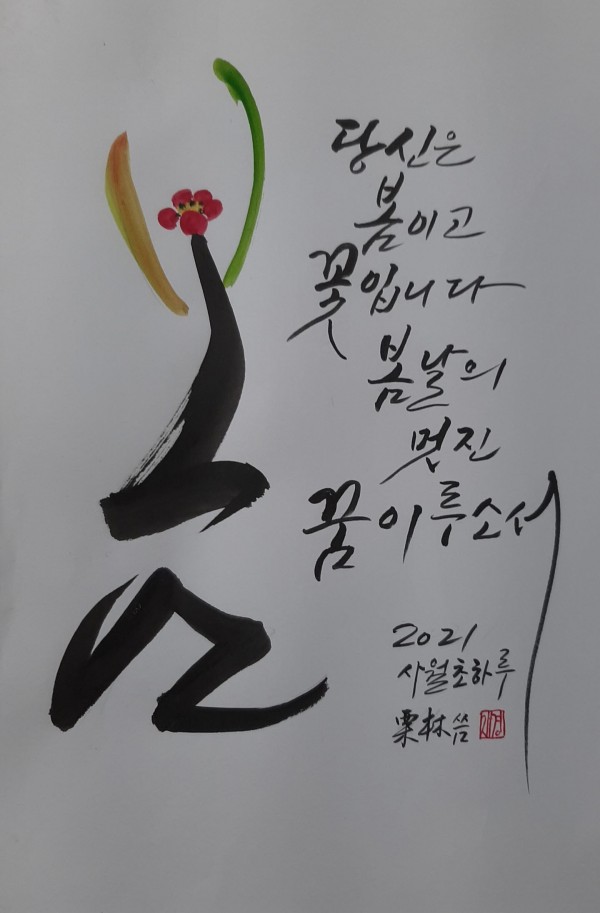 봄
당신은
봄이고
꽃입니다
봄날의
멋진
꿈이루소서
2021
사월초하루
栗林 씀